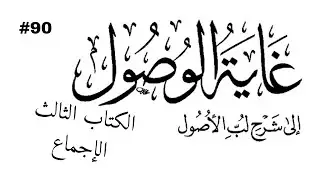 #90
غَايَةُ الوُصُول
إِلىٰ شَرْحِ لُبِّ الأُصُول
الكتاب الثالث
الإجماع